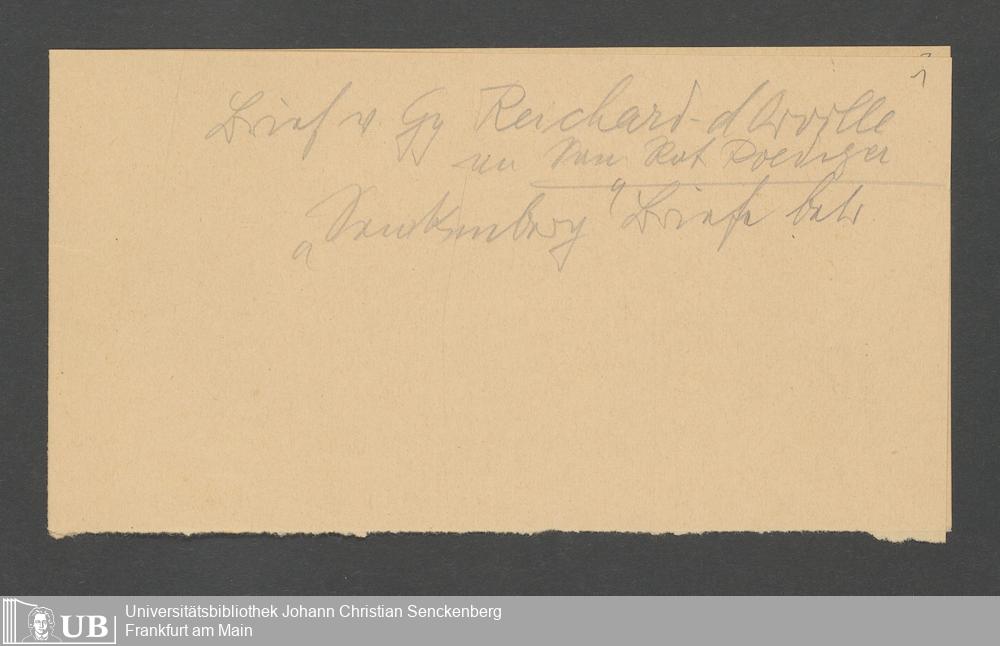 1
Brief v. Gg Reichard-d'Orville
an San Rat Roediger
Senckenberg Briefe betr
UB
Universitätsbibliothek Johann Christian Senckenberg
Frankfurt am Main